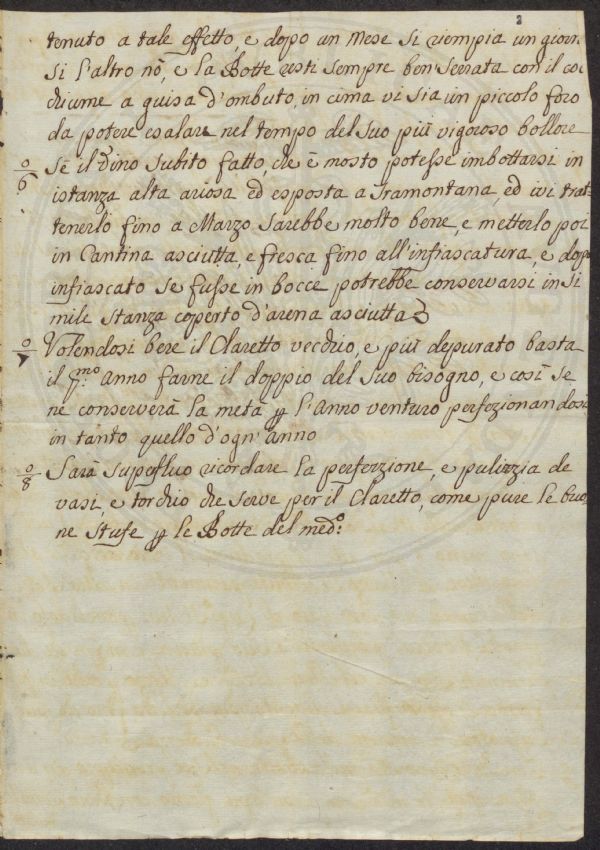 2
tenuto a tale effetto, e dopo un Mese si riempia un giorn
si l'altro nò, e la Botte resti sempre ben serrata con il coc
chiume a guisa d'ombuto, in cima vi sia un piccolo foro
da potere esalare nel tempo del suo più vigoroso bollore
0/6 Se il Vino subito fatto, che è mosto potesse imbottarsi in
istanza alta ariosa ed esposta a Tramontana, ed ivi trat
tenerlo fino a Marzo sarebbe molto bene, e metterlo poi
in Cantina asciutta, e fresca fino all'infiascatura, e dopo
infiascato se fusse in bocce potrebbe conservarsi in si
mile stanza coperto d'arena asciutta
0/7 Volendosi bere il Claretto vecchio, e più depurato basta
il p.mo Anno farne il doppio del suo bisogno, e così se
ne conserverà la metà p l'Anno venturo perfezionandosi
in tanto quello d'ogn'anno
0/8 Sarà superfluo ricordare la perferzione, e pulizzia de
vasi, e torchio che serve per il Claretto, come pure le buo
ne Stufe p le Botte del med.o